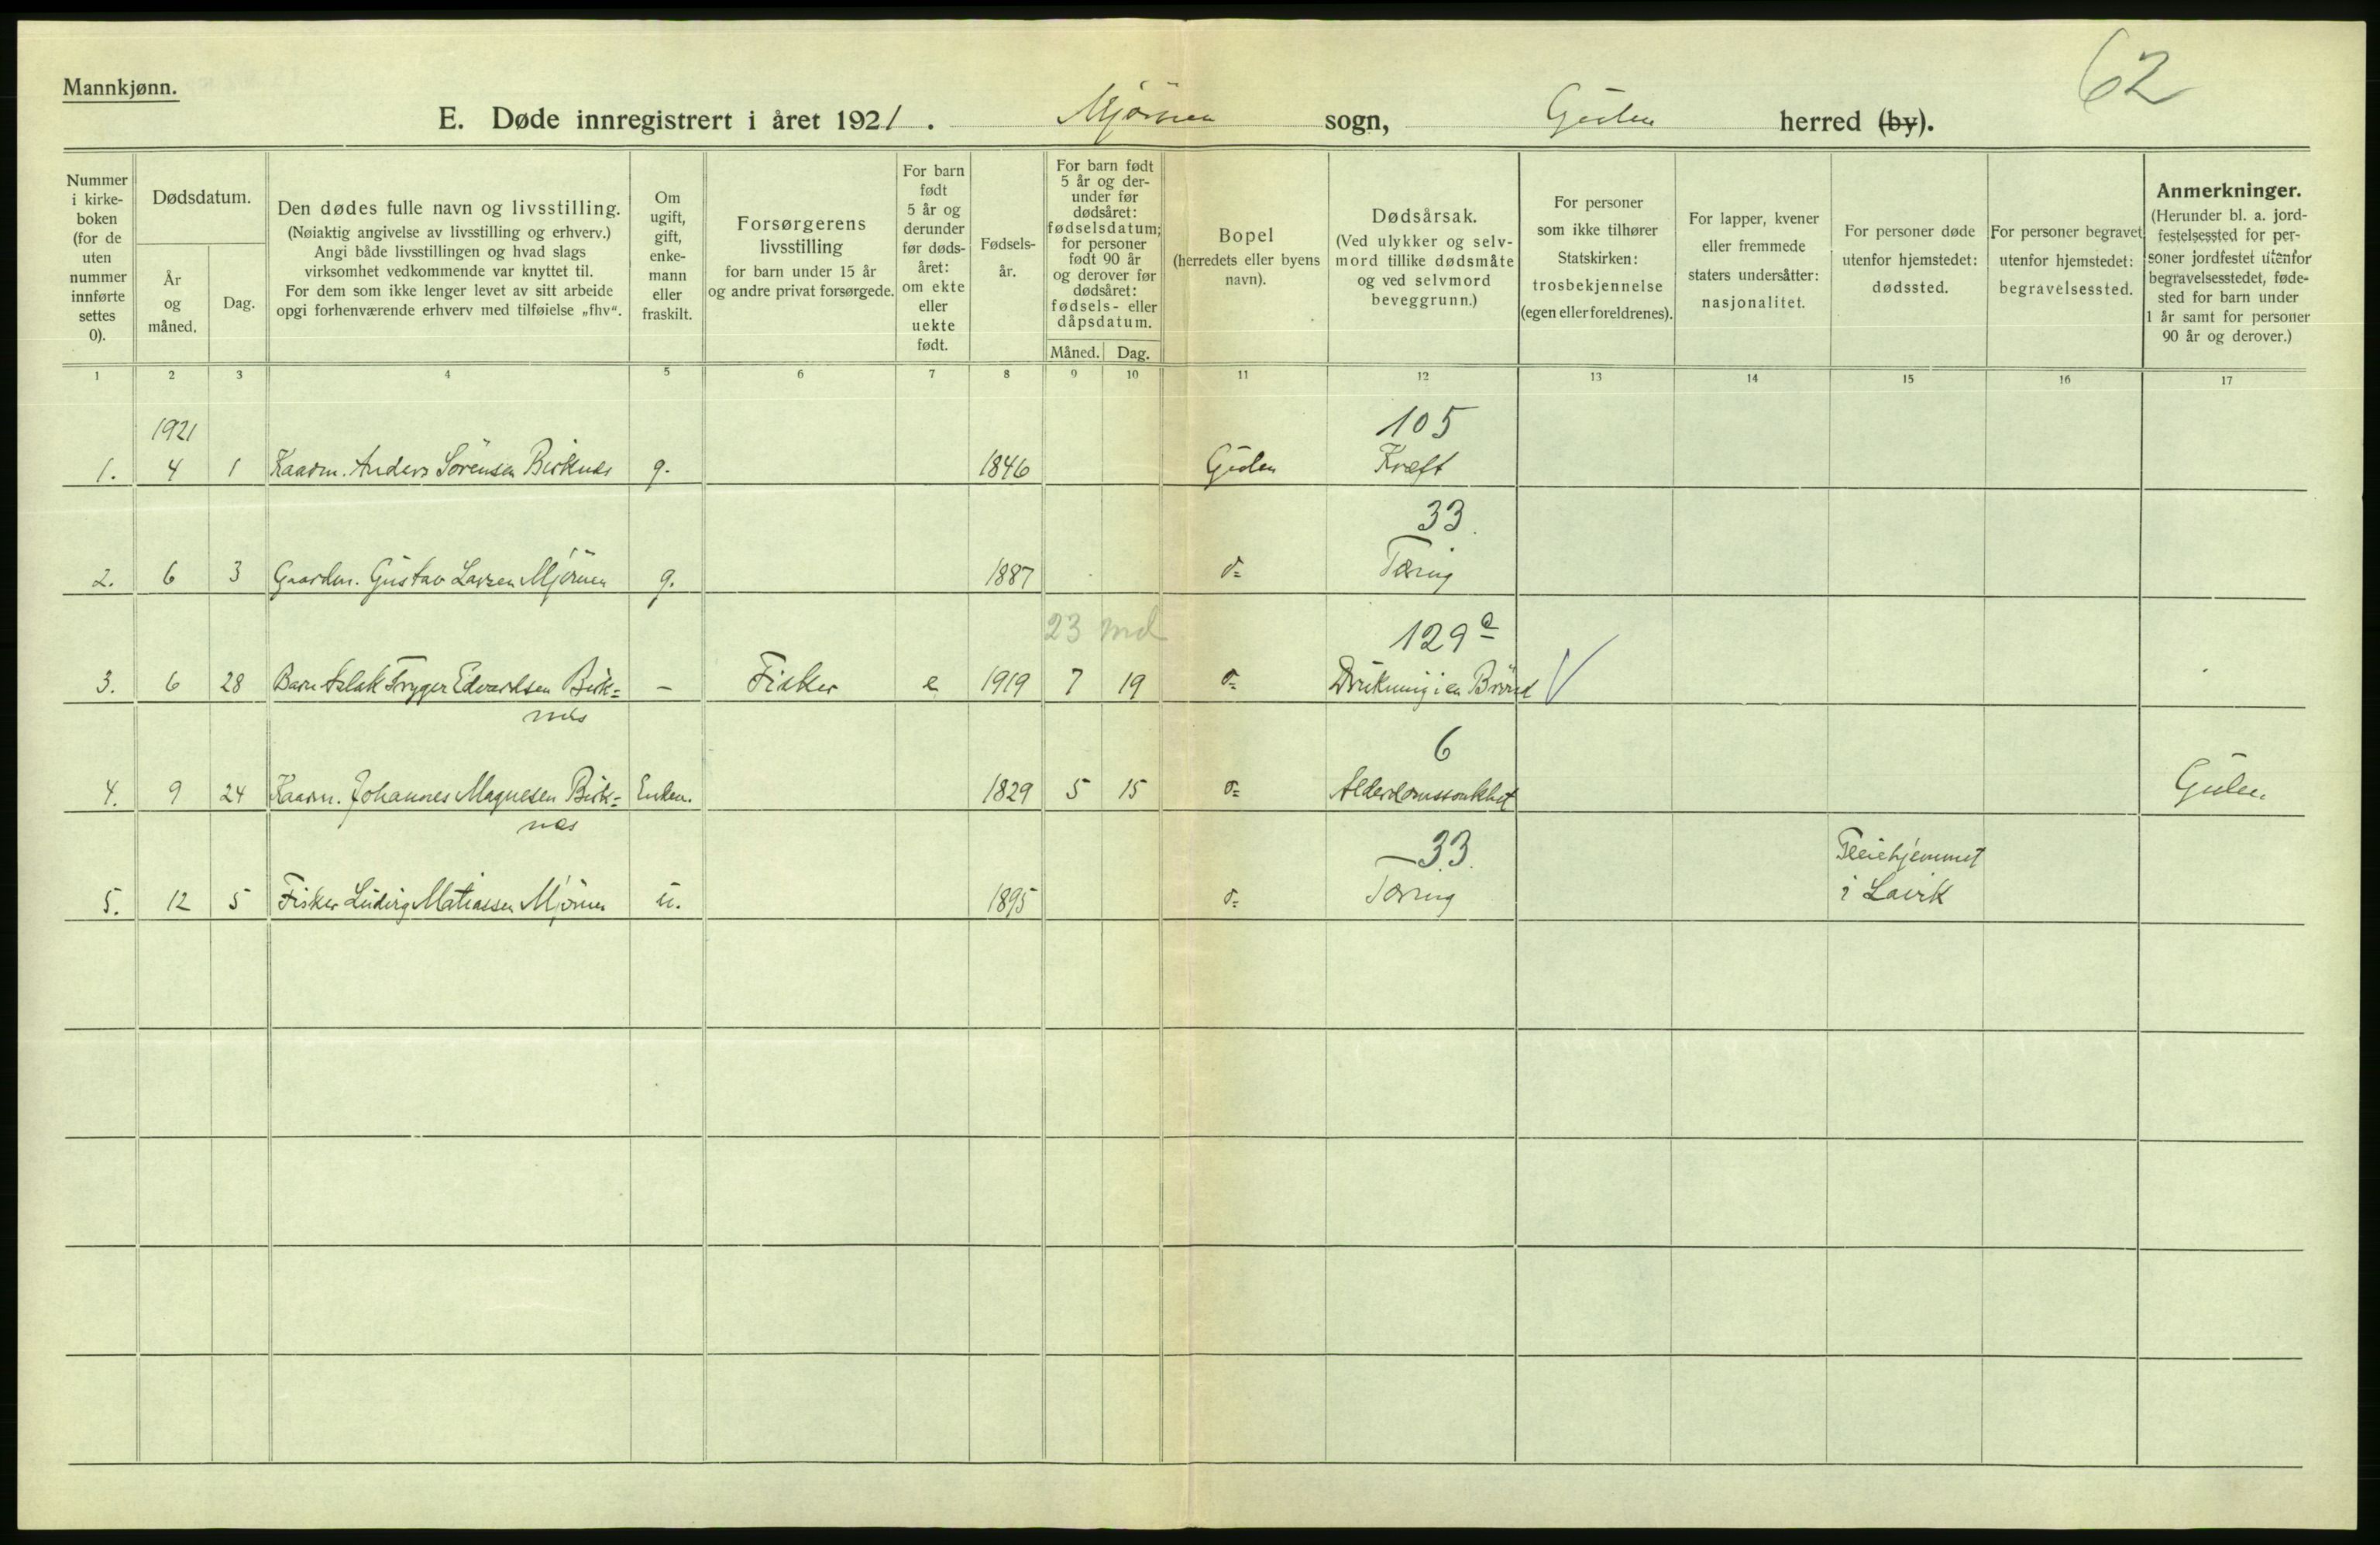 Mannkjønn.
62
E. Døde innregistrert i året 1921. Mjømen sogn, Gulen herred (by).
Nummer
i kirke-
boken
(for de
uten
nummer
innførte
settes
0).
Dødsdatum.
År
og
måned.
Dag.
Den dødes fulle navn og livsstilling.
(Nøiaktig angivelse av livsstilling og erhverv.)
Angi både livsstillingen og hvad slags
virksomhet vedkommende var knyttet til.
For dem som ikke lenger levet av sitt arbeide
opgi forhenværende erhverv med tilføielse „fhv“.
Om
ugift,
gift,
enke-
mann
eller
fraskilt.
Forsørgerens
livsstilling
for barn under 15 år
og andre privat forsørgede.
For barn
født
5 år og
derunder
før døds-
året:
om ekte
eller
uekte
født.
Fødsels-
år.
For barn født
5 år og der-
under før
dødsåret:
fødselsdatum;
for personer
født 90 år
og derover før
dødsåret:
fødsels- eller
dåpsdatum.
Måned. Dag.
Bopel
(herredets eller byens
navn).
Dødsårsak.
(Ved ulykker og selv-
mord tillike dødsmåte
og ved selvmord
beveggrunn.)
For personer
som ikke tilhører
Statskirken:
trosbekjennelse
(egen eller foreldrenes).
For lapper, kvener
eller fremmede
staters undersåtter:
nasjonalitet.
For personer døde
utenfor hjemstedet:
dødssted.
For personer begravet
utenfor hjemstedet:
begravelsessted.
Anmerkninger.
(Herunder bl. a. jord-
festelsessted for per-
soner jordfestet utenfor
begravelsesstedet, føde-
sted for barn under
1 år samt for personer
90 år og derover.)
1 2 3 4 5 6 7 8 9 10 11 12 13 14 15 16 17
1921 105
1. 4 1 Kaarm. Anders Sörensen Birknes g. 1846 Gulen Kræft
33.
2. 6 3 Gaardm. Gustav Larsen Mjömen g. 1887 d= Tæring
23 md 129 e
3. 6 28 Barn Aslak Trygve Edvardsen Birk= – Fisker e 1919 7 19 d= Drukning i en Brönd V
nes
6
4. 9 24 Kaarm. Johannes Magnesen Birk= Enkem. 1829 5 15 d= Alderdomssvakhet Gulen
nes
33. Pleiehjemmet
5. 12 5 Fisker Ludvig Matiassen Mjömen u. 1895 d= Tæring i Lavik